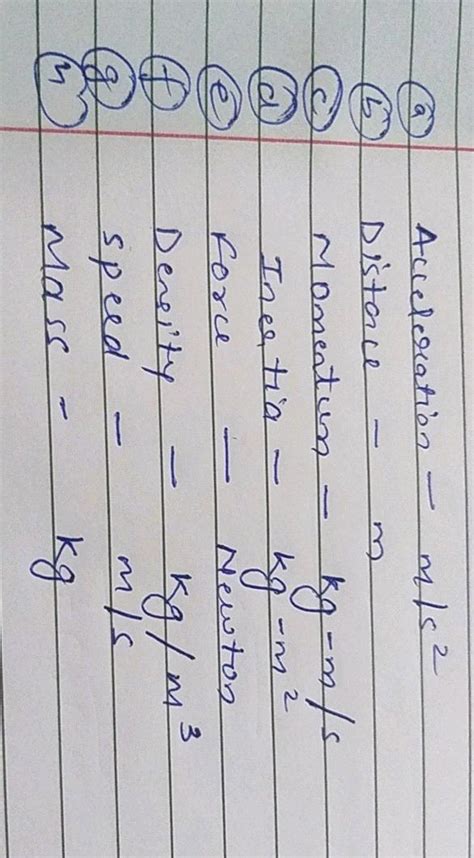 a Acceleration — m/s²
b Distance — m
c Momentum — kg-m/s
d Inertia — kg-m²
e Force — Newton
f Density — kg/m³
g Speed — m/s
h Mass — kg